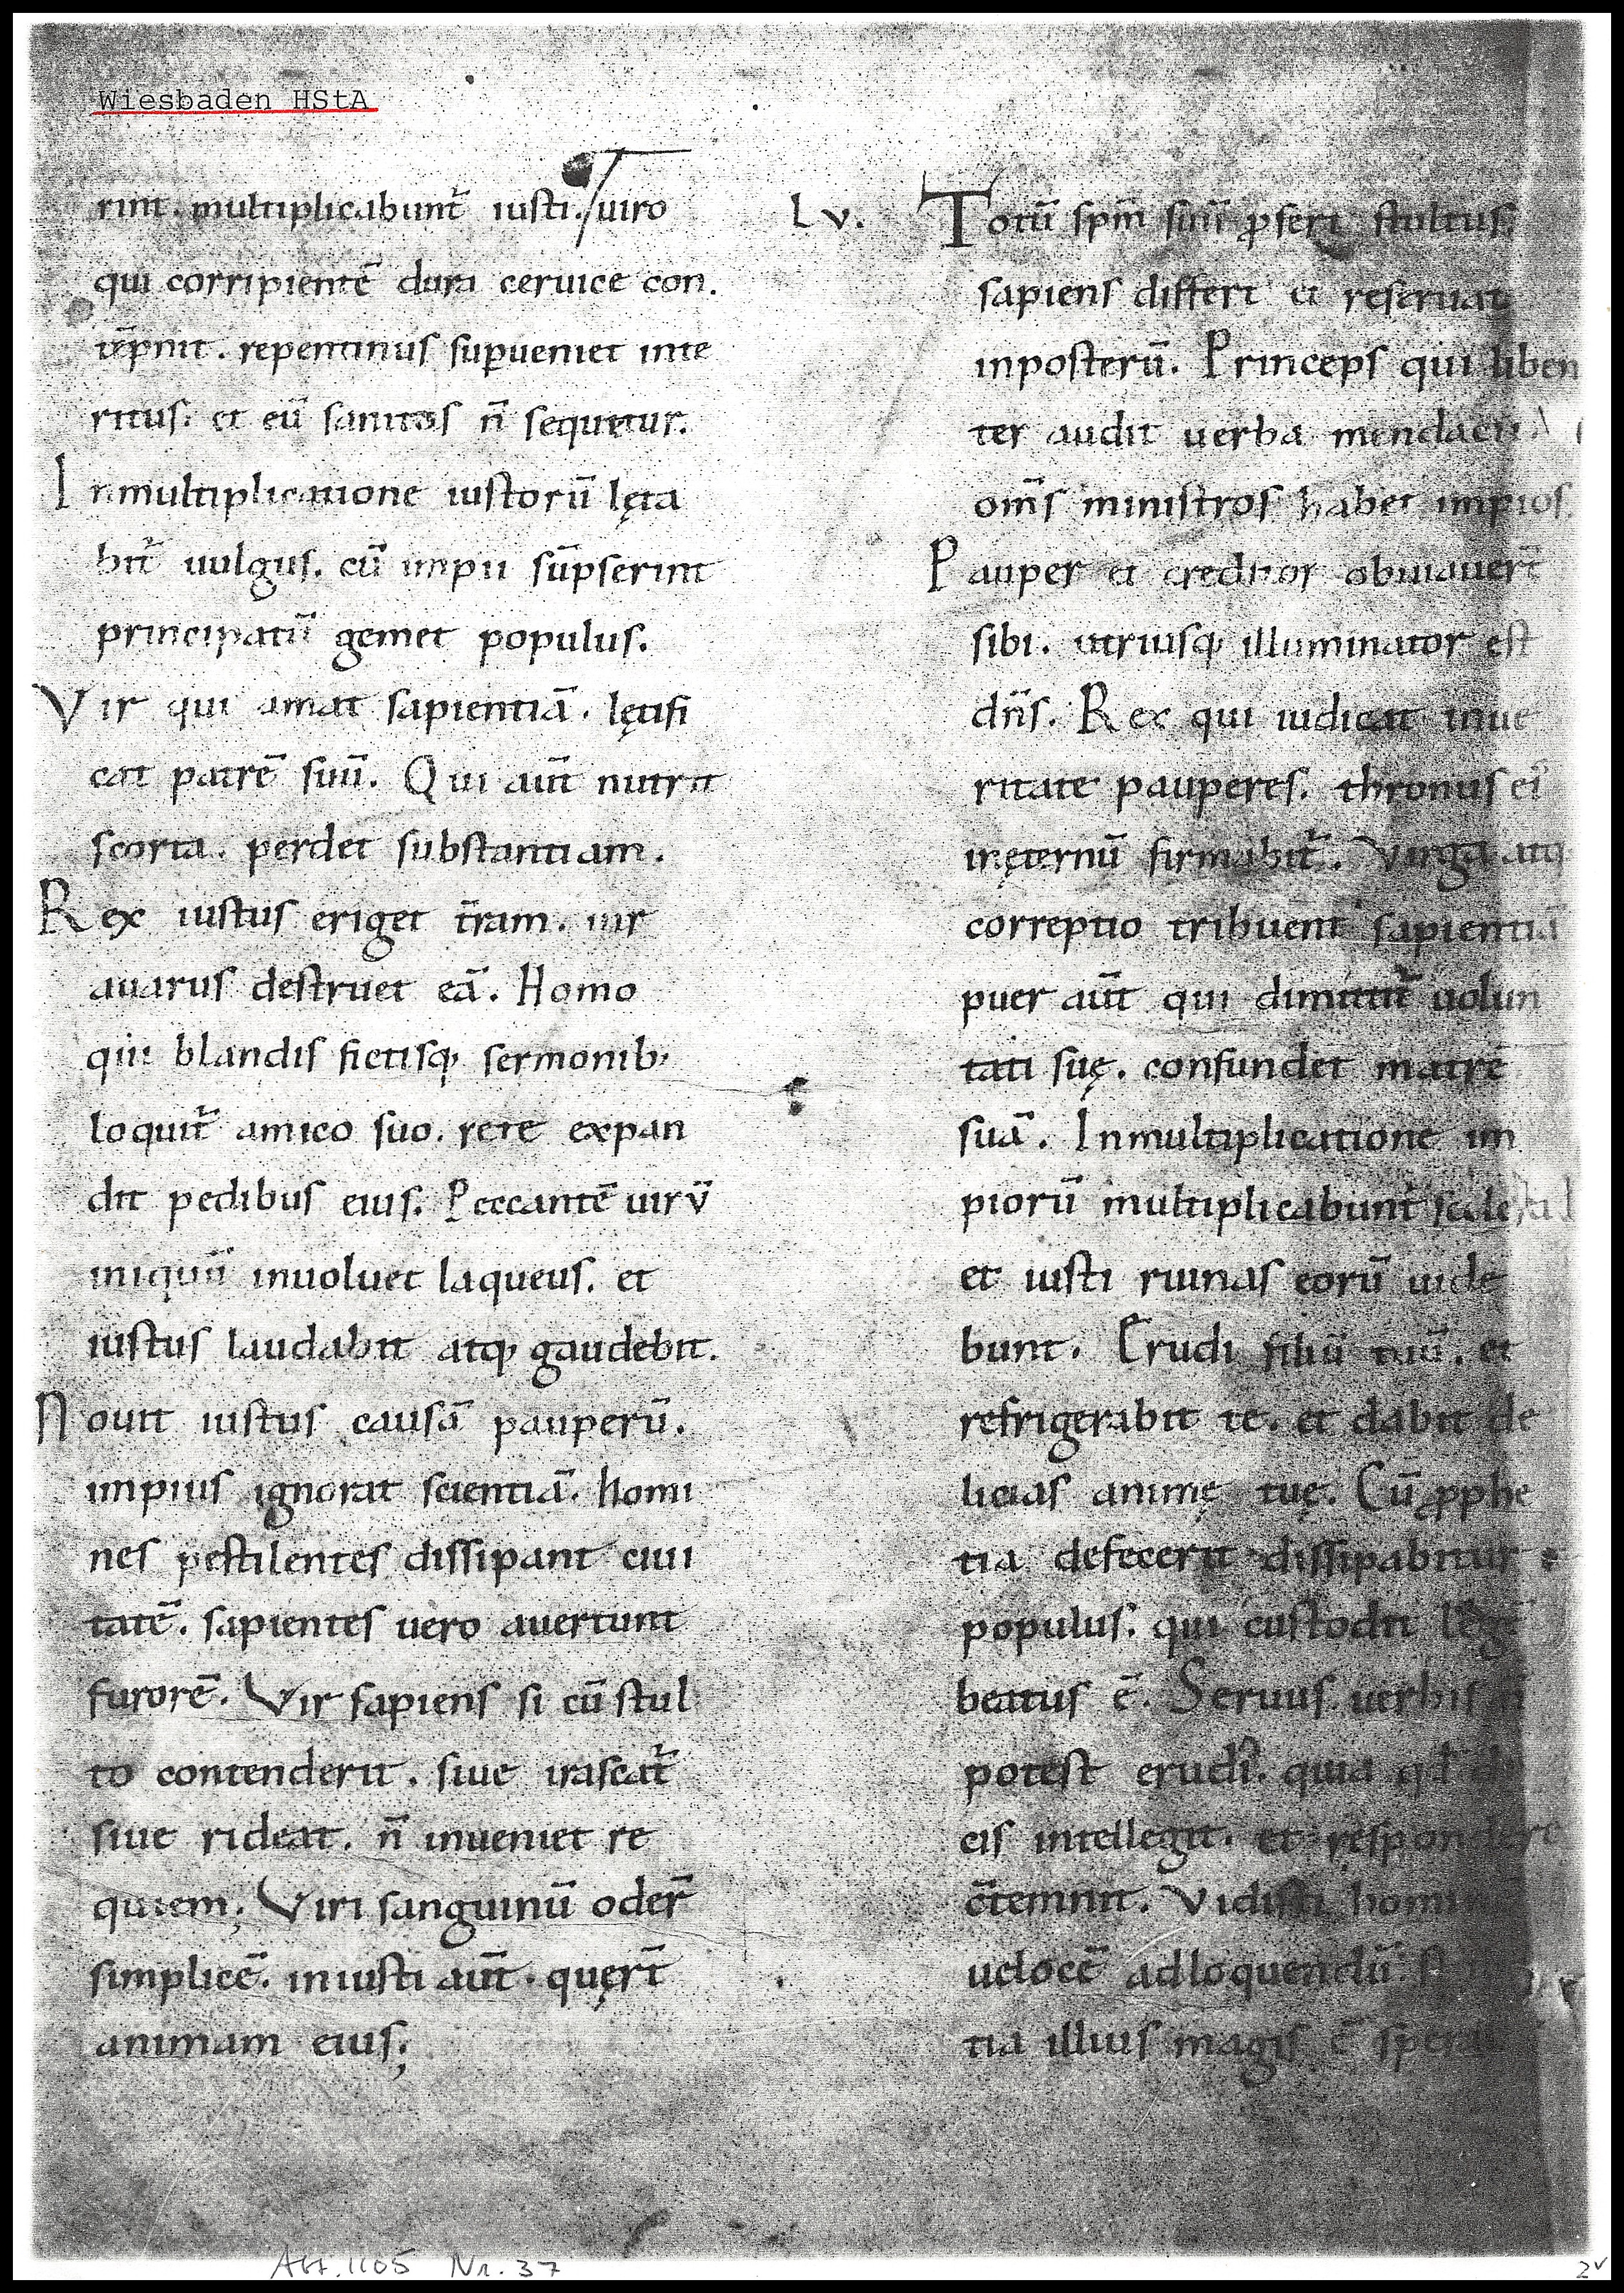 Wiesbaden HStA
rint. multiplicabunt᷑ iusti. viro
qui corripientē dura ceruice con.
tēpnit. repentinus sup̱ueniet inte
ritus: et eū sanitas n̄ sequetur.
Inmultiplicatione iustorū lęta
bit᷑ uulgus. cū impii sūpserint
principatū gemet populus.
Vir qui amat sapientiā. lętifi
cat patrē suū. Qui aūt nutrit
scorta. perdet substantiam.
Rex iustus eriget t̄ram. uir
auarus destruet eā. Homo
qui blandis fictisq; sermonib;
loquit᷑ amico suo. rete expan
dit pedibus eius. Peccantē uirū
iniquū inuoluet laqueus. et
iustus laudabit atq; gaudebit.
Nouit iustus causā pauperū.
impius ignorat scientiā. homi
nes pestilentes dissipant ciui
tatē. sapientes vero auertunt
furorē. Vir sapiens si cū stul
to contenderit. siue irascat᷑
siue rideat. n̄ inueniet re
quiem; Viri sanguinū oder̄
simplicē. iniusti aūt. quęr̄t
animam eius;
Lv. Totū spm̄ suū ꝓfert stultus:
sapiens differt et reseruat
inposterū. Princeps qui liben
ter audit uerba mendacii
om̄s ministros habet impios.
Pauper et creditor obuiauer̄t
sibi. utriusq; illuminator est
dn̄s. Rex qui iudicat inue
ritate pauperes. thronus ei᷒
inęternū firmabit᷑. Virga atq;
correptio tribuent sapientiā
puer aūt qui dimittit᷑ uolun
tati suę. confundet matrē
suā. Inmultiplicatione im
piorū multiplicabunt᷑ scele
et iusti ruinas eorū uide
bunt. Erudi filiū tuū. et
refrigerabit te. et dabit de
licias animę tuę. Cū ꝓphe
tia defecerit dissipabitur
populus: qui custodit legē
beatus ē. Seruus uerbis
potest erudi. quia qd̄
cis intellegit. et respondere
c̄temnit. Vidisti
uelocē adloquendū.
tia illius magis ē
Abt. 1105 Nr. 37
2v